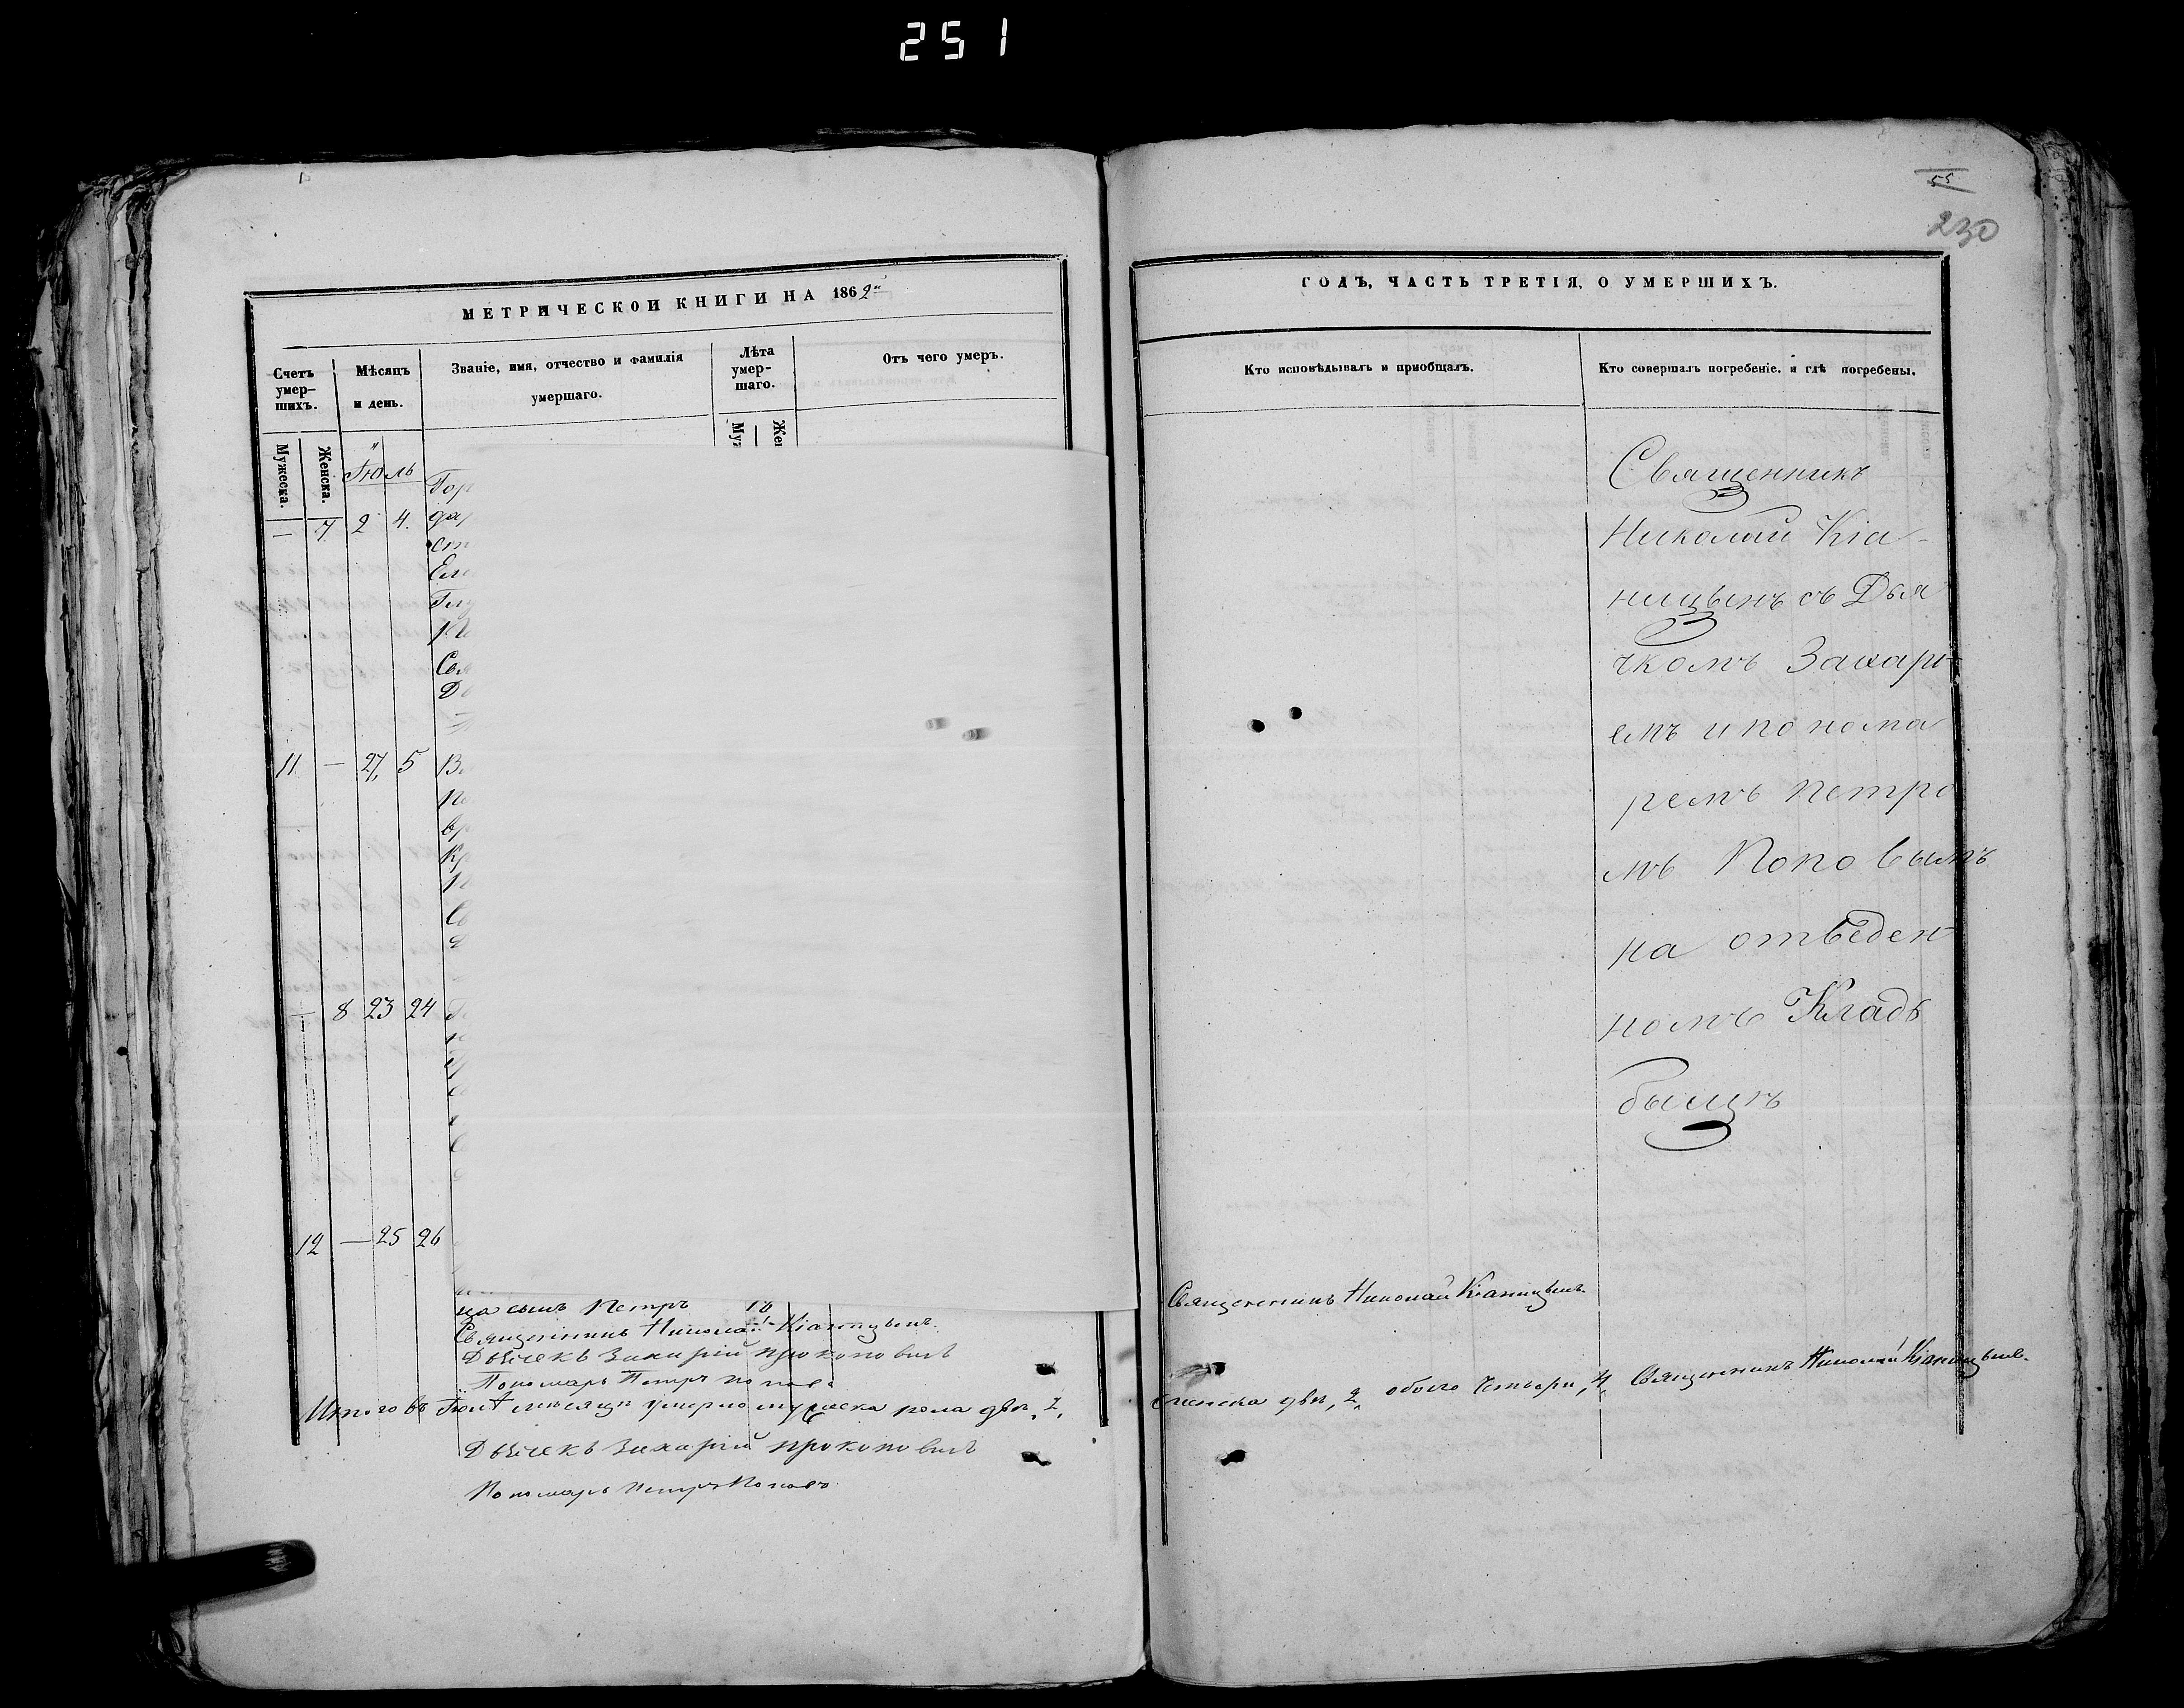 251
55
230
МЕТРИЧЕСКОЙ КНИГИ НА 1862й
Счетъ умер-шихъ.
Мѣсяцъ и день.
Званіе, имя, отчество и фамилія умершаго.
Лѣта умер-шаго.
Отъ чего умеръ.
Мужеска.
Женска.
Муж
Жен
Іюль
— 7 2 4.
Гор
дар
Ели
11. — 27, 5
— 8 23 24
12 — 25 26
на сынъ Петръ
Священникъ Николай Кіаницынъ.
Дьячекъ Захарій Прокоповичъ
Пономарь Петръ Попова
Итого въ Іюлѣ мѣсяцѣ умерло мужеска пола два, 2,
Дьячекъ Захарій Прокоповичъ
Пономарь Петръ Поповъ
ГОДЪ, ЧАСТЬ ТРЕТІЯ, О УМЕРШИХЪ.
Кто исповѣдывалъ и пріобщалъ.
Кто совершалъ погребеніе, и гдѣ погребены.
Священникъ
Николай Кіа-
ницынъ съ Дья
чкомъ Захарі-
емъ и понома
ремъ Петро
мъ Поповымъ
на отведен
номъ Кладъ
бищѣ
Священникъ Николай Кіаницынъ.
женска два, 2, обоего четыри, 4, Священникъ Николай Кіаницынъ.